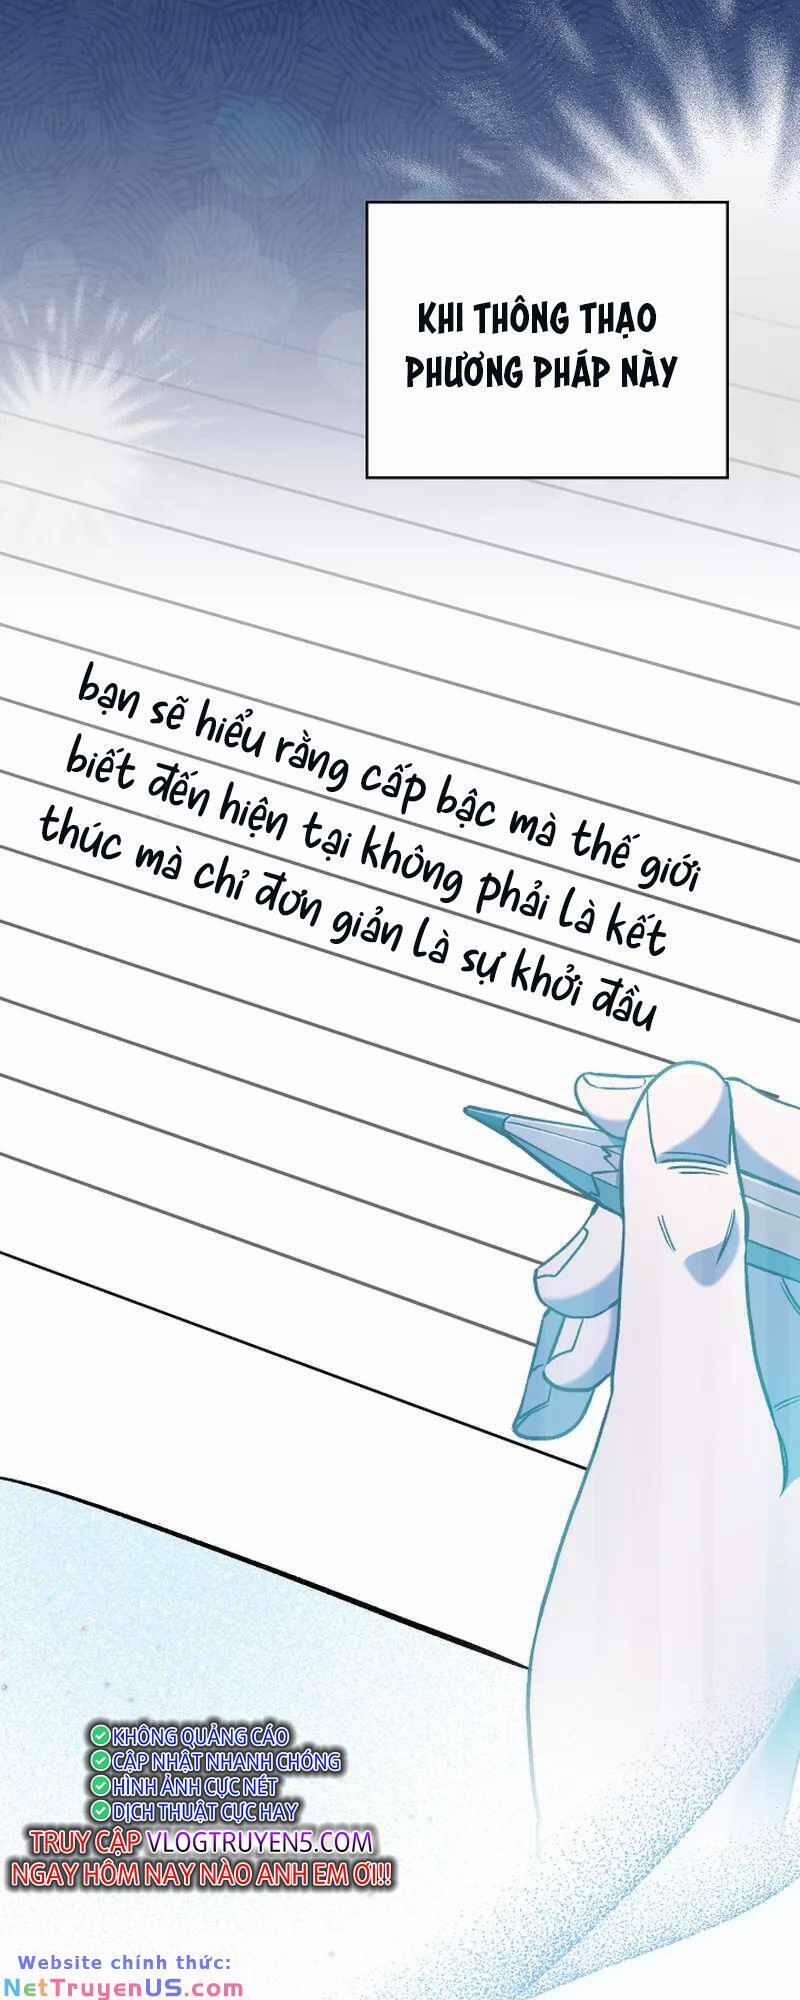 KHI THÔNG THẠO
PHƯƠNG PHÁP NÀY
bạn sẽ hiểu rằng cấp bậc mà thế giới
biết đến hiện tại không phải là kết
thúc mà chỉ đơn giản là sự khởi đầu
KHÔNG QUẢNG CÁO
CẬP NHẬT NHANH CHÓNG
HÌNH ẢNH CỰC NÉT
DỊCH THUẬT CỰC HAY
TRUY CẬP VLOGTRUYEN5.COM
NGAY HÔM NAY NÀO ANH EM ƠI!!!
Website chính thức:
NETTRUYENUS.COM